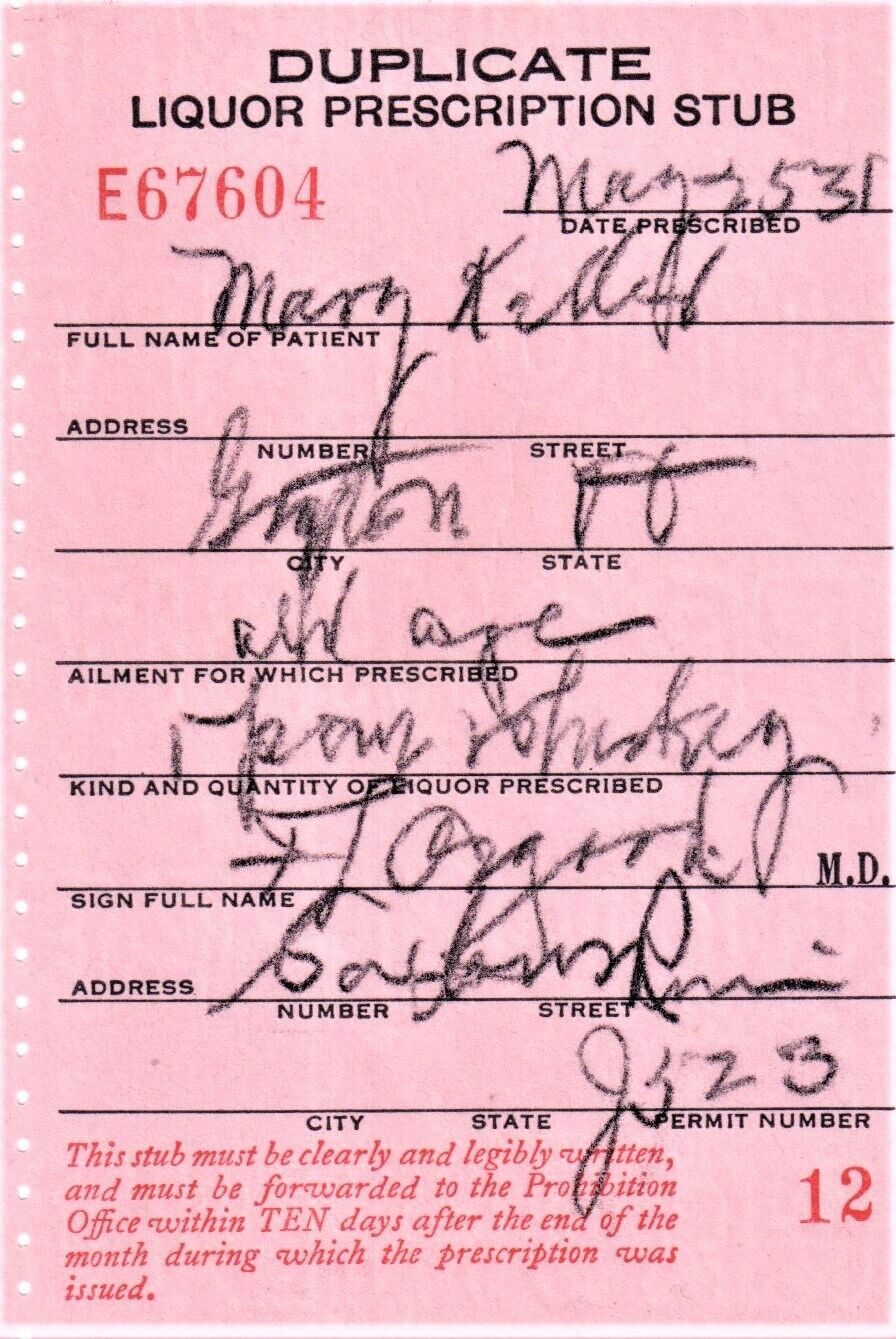 DUPLICATE
LIQUOR PRESCRIPTION STUB
E67604
May 25 31
DATE PRESCRIBED
Mary
FULL NAME OF PATIENT
ADDRESS
NUMBER STREET
Grafton Vt
CITY STATE
old age
AILMENT FOR WHICH PRESCRIBED
1 pour Whiskey
KIND AND QUANTITY OF LIQUOR PRESCRIBED
F L Osgood M.D.
SIGN FULL NAME
ADDRESS Saxtons River
NUMBER STREET
J523
CITY STATE PERMIT NUMBER
This stub must be clearly and legibly written,
and must be forwarded to the Prohibition
Office within TEN days after the end of the
month during which the prescription was
issued.
12